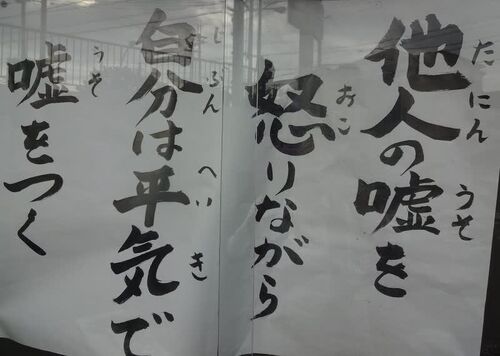 他人の嘘を
たにん うそ
怒りながら
おこ
自分は平気で
じぶん へいき
嘘をつく
うそ